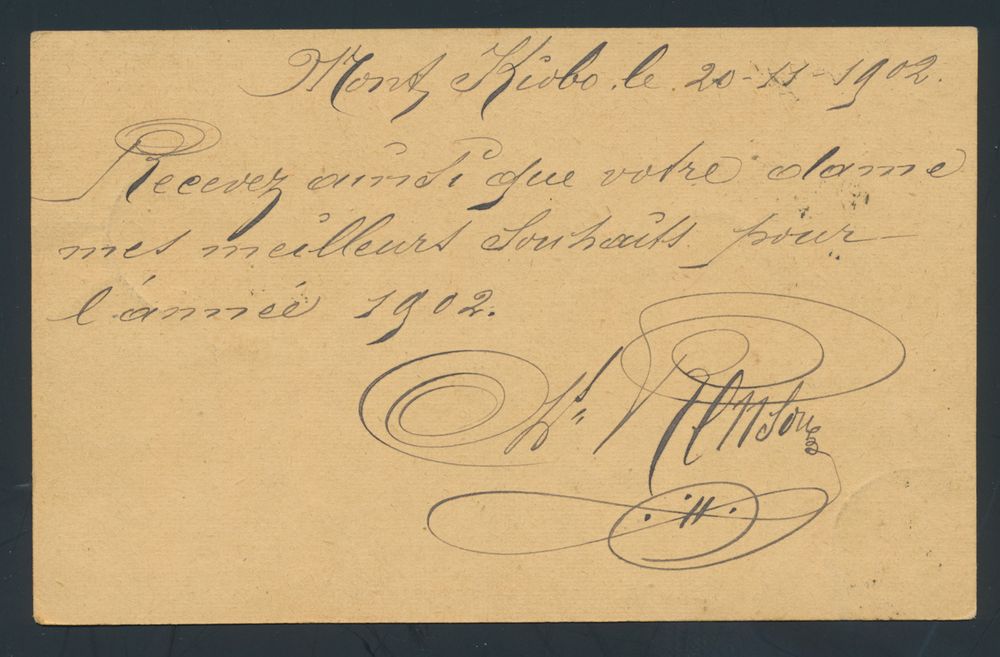 Mont Kiobo. le. 20-11-1902.
Recevez ainsi que votre dame
mes meilleurs Souhaits pour
l'année 1902.